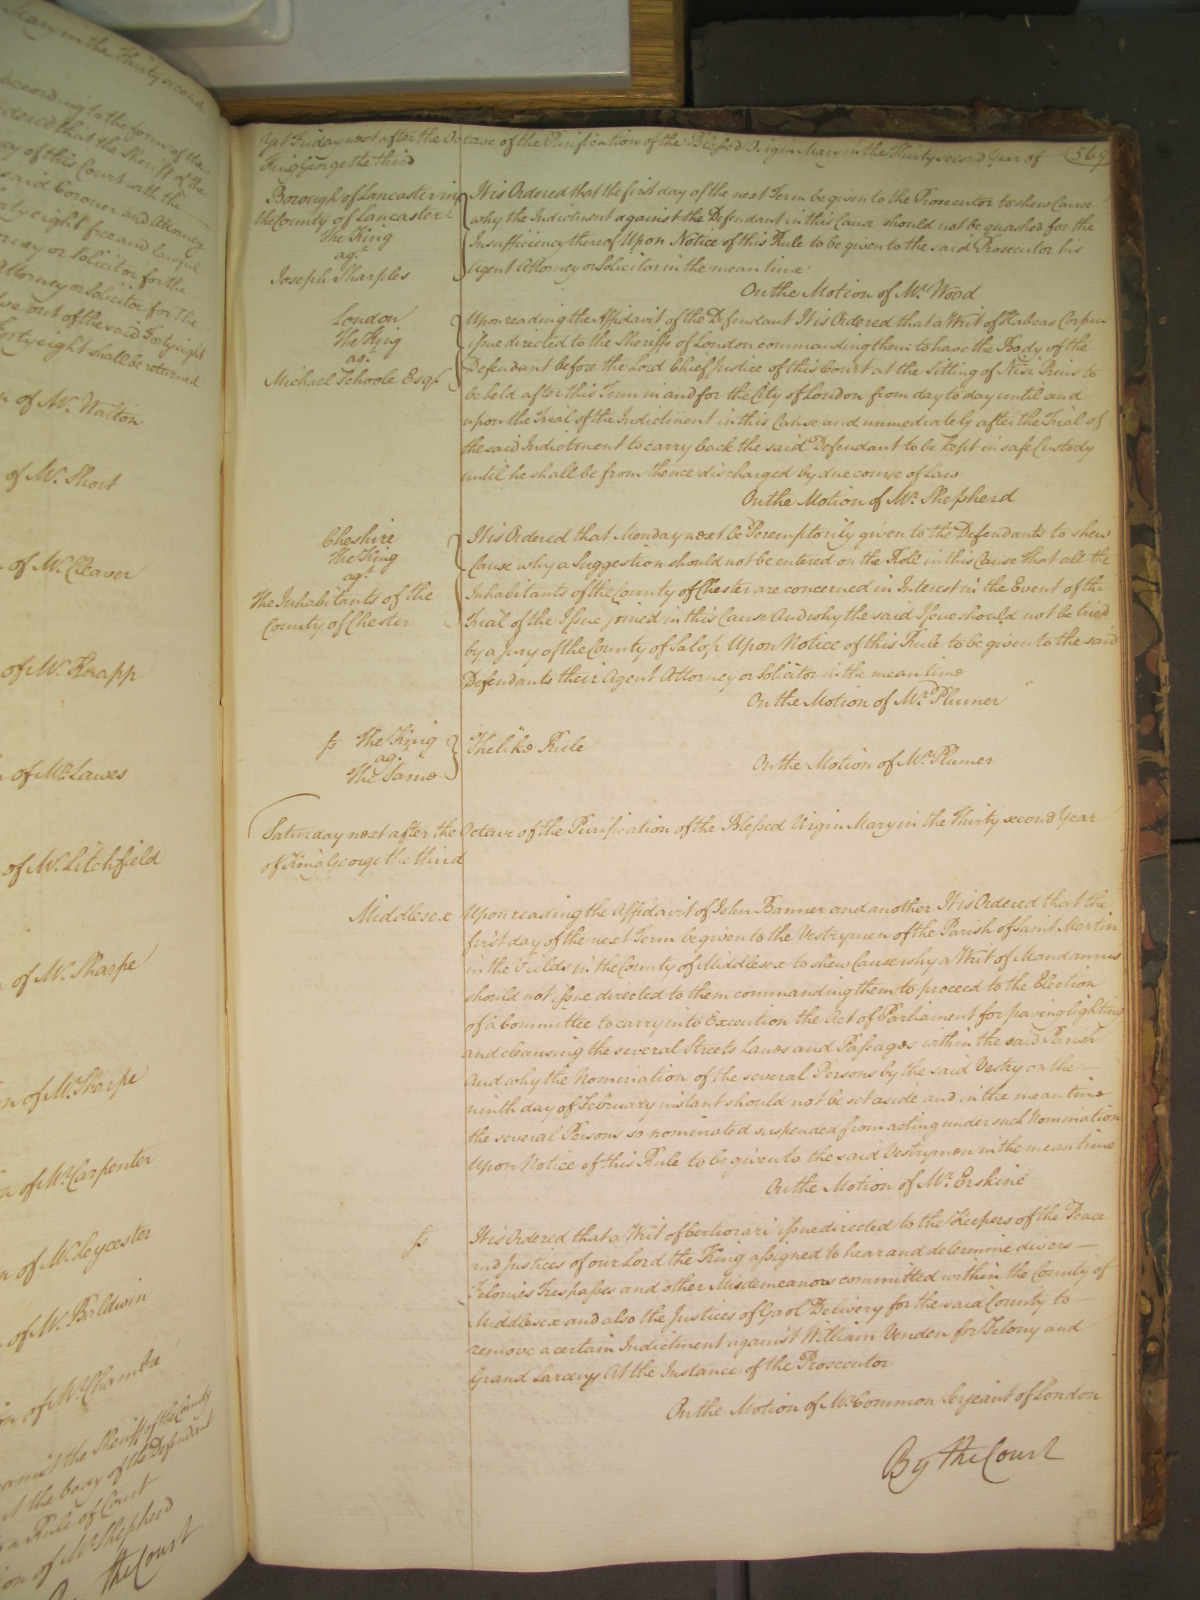 Mary in the Thirty second
according to the form of the
Ordered that the Sheriff of the
of this Court with the
said Coroner and Attorney
eight free and lawful
or Solicitor for the
Attorney or Solicitor for the
out of the said Forty eight
Forty eight shall be returned
of Mr. Walton
of Mr. Short
of Mr. Cleaver
of Mr. Knapp
of Mr. Lawes
of Mr. Litchfield
of Mr. Sharpe
of Mr. Sharpe
of Mr. Carpenter
of Mr. Leycester
of Mr. Baldwin
of Mr.
against the Sheriff of the County
the body of the Defendant
a Rule of Court
of Mr. Shepherd
By the Court
Yet Friday next after the Octave of the Purification of the Blessed Virgin Mary in the Thirty second Year of 569
King George the third
Borough of Lancaster in
the County of Lancaster
The King
agt.
Joseph Sharples
It is Ordered that the first day of the next Term be given to the Prosecutor to shew Cause
why the Indictment against the Defendant in this Cause should not be quashed for the
Insufficiency thereof Upon Notice of this Rule to be given to the said Prosecutor his
Agent Attorney or Solicitor in the mean time
On the Motion of Mr. Wood
London
The King
agt.
Michael Schoole Esqr.
Upon reading the Affidavit of the Defendant It is Ordered that a Writ of Habeas Corpus
issue directed to the Sheriffs of London commanding them to have the Body of the
Defendant before the Lord Chief Justice of this Court at the Sitting of Nisi Prius to
be held after this Term in and for the City of London from day to day until and
upon the Trial of the Indictment in this Cause and immediately after the Trial of
the said Indictment to carry back the said Defendant to be kept in safe Custody
until he shall be from thence discharged by due course of Law
On the Motion of Mr. Shepherd
Cheshire
The King
agt.
The Inhabitants of the
County of Chester
It is Ordered that Monday next be Peremptorily given to the Defendants to shew
Cause why a Suggestion should not be entered on the Roll in this Cause that all the
Inhabitants of the County of Chester are concerned in Interest in the Event of the
Trial of the Issue joined in this Cause And why the said Issue should not be tried
by a Jury of the County of Salop Upon Notice of this Rule to be given to the said
Defendants their Agent Attorney or Solicitor in the mean time
On the Motion of Mr. Plumer
ss The King
agt.
The Same
The like Rule
On the Motion of Mr. Plumer
Saturday next after the Octave of the Purification of the Blessed Virgin Mary in the Thirty second Year
of King George the third
Middlesex
Upon reading the Affidavit of John Banner and another It is Ordered that the
first day of the next Term be given to the Vestrymen of the Parish of Saint Martin
in the Fields in the County of Middlesex to shew Cause why a Writ of Mandamus
should not issue directed to them commanding them to proceed to the Election
of a Committee to carry into Execution the Act of Parliament for paving lighting
and cleansing the several Streets Lanes and Passages within the said Parish
And why the Nomination of the several Persons by the said Vestry on the
ninth day of February instant should not be set aside and in the mean time
the several Persons so nominated suspended from acting under such Nomination
Upon Notice of this Rule to be given to the said Vestrymen in the mean time
On the Motion of Mr. Erskine
ss
It is Ordered that a Writ of Certiorari issue directed to the Keepers of the Peace
and Justices of our Lord the King assigned to hear and determine divers
Felonies Trespasses and other Misdemeanors committed within the County of
Middlesex and also the Justices of Gaol Delivery for the said County to
remove a certain Indictment against William Venden for Felony and
Grand Larceny At the Instance of the Prosecutor
On the Motion of Mr. Common Serjeant of London
By the Court